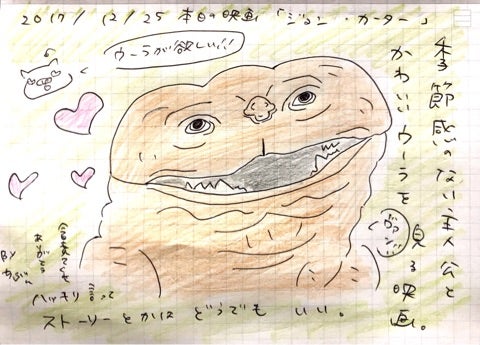 2017/12/25 本日の映画「ジョン・カーター」
ウーラが欲しい!!
季節感のない主人公と
かわいいウーラを
見る映画。
ハッキリ言って
ストーリーとかは どうでもいい。